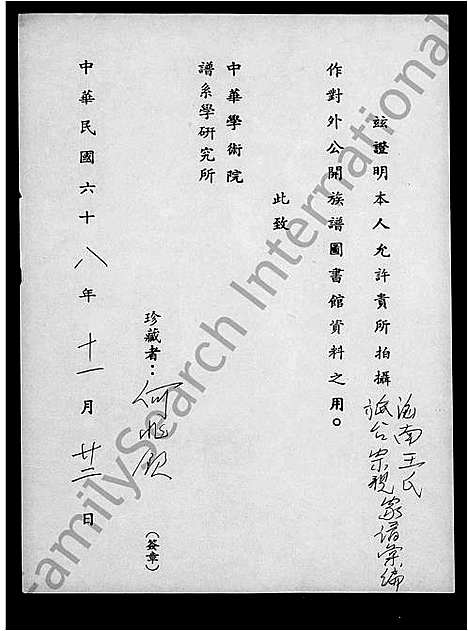 茲證明本人允許貴所拍攝海南王氏
祧台宗親家譜彙編
作對外公開族譜圖書館資料之用。
此致
中華學術院
譜系學研究所
珍藏者：何兆欽
（簽章）
中華民國六十八年十一月廿二日
FamilySearch International